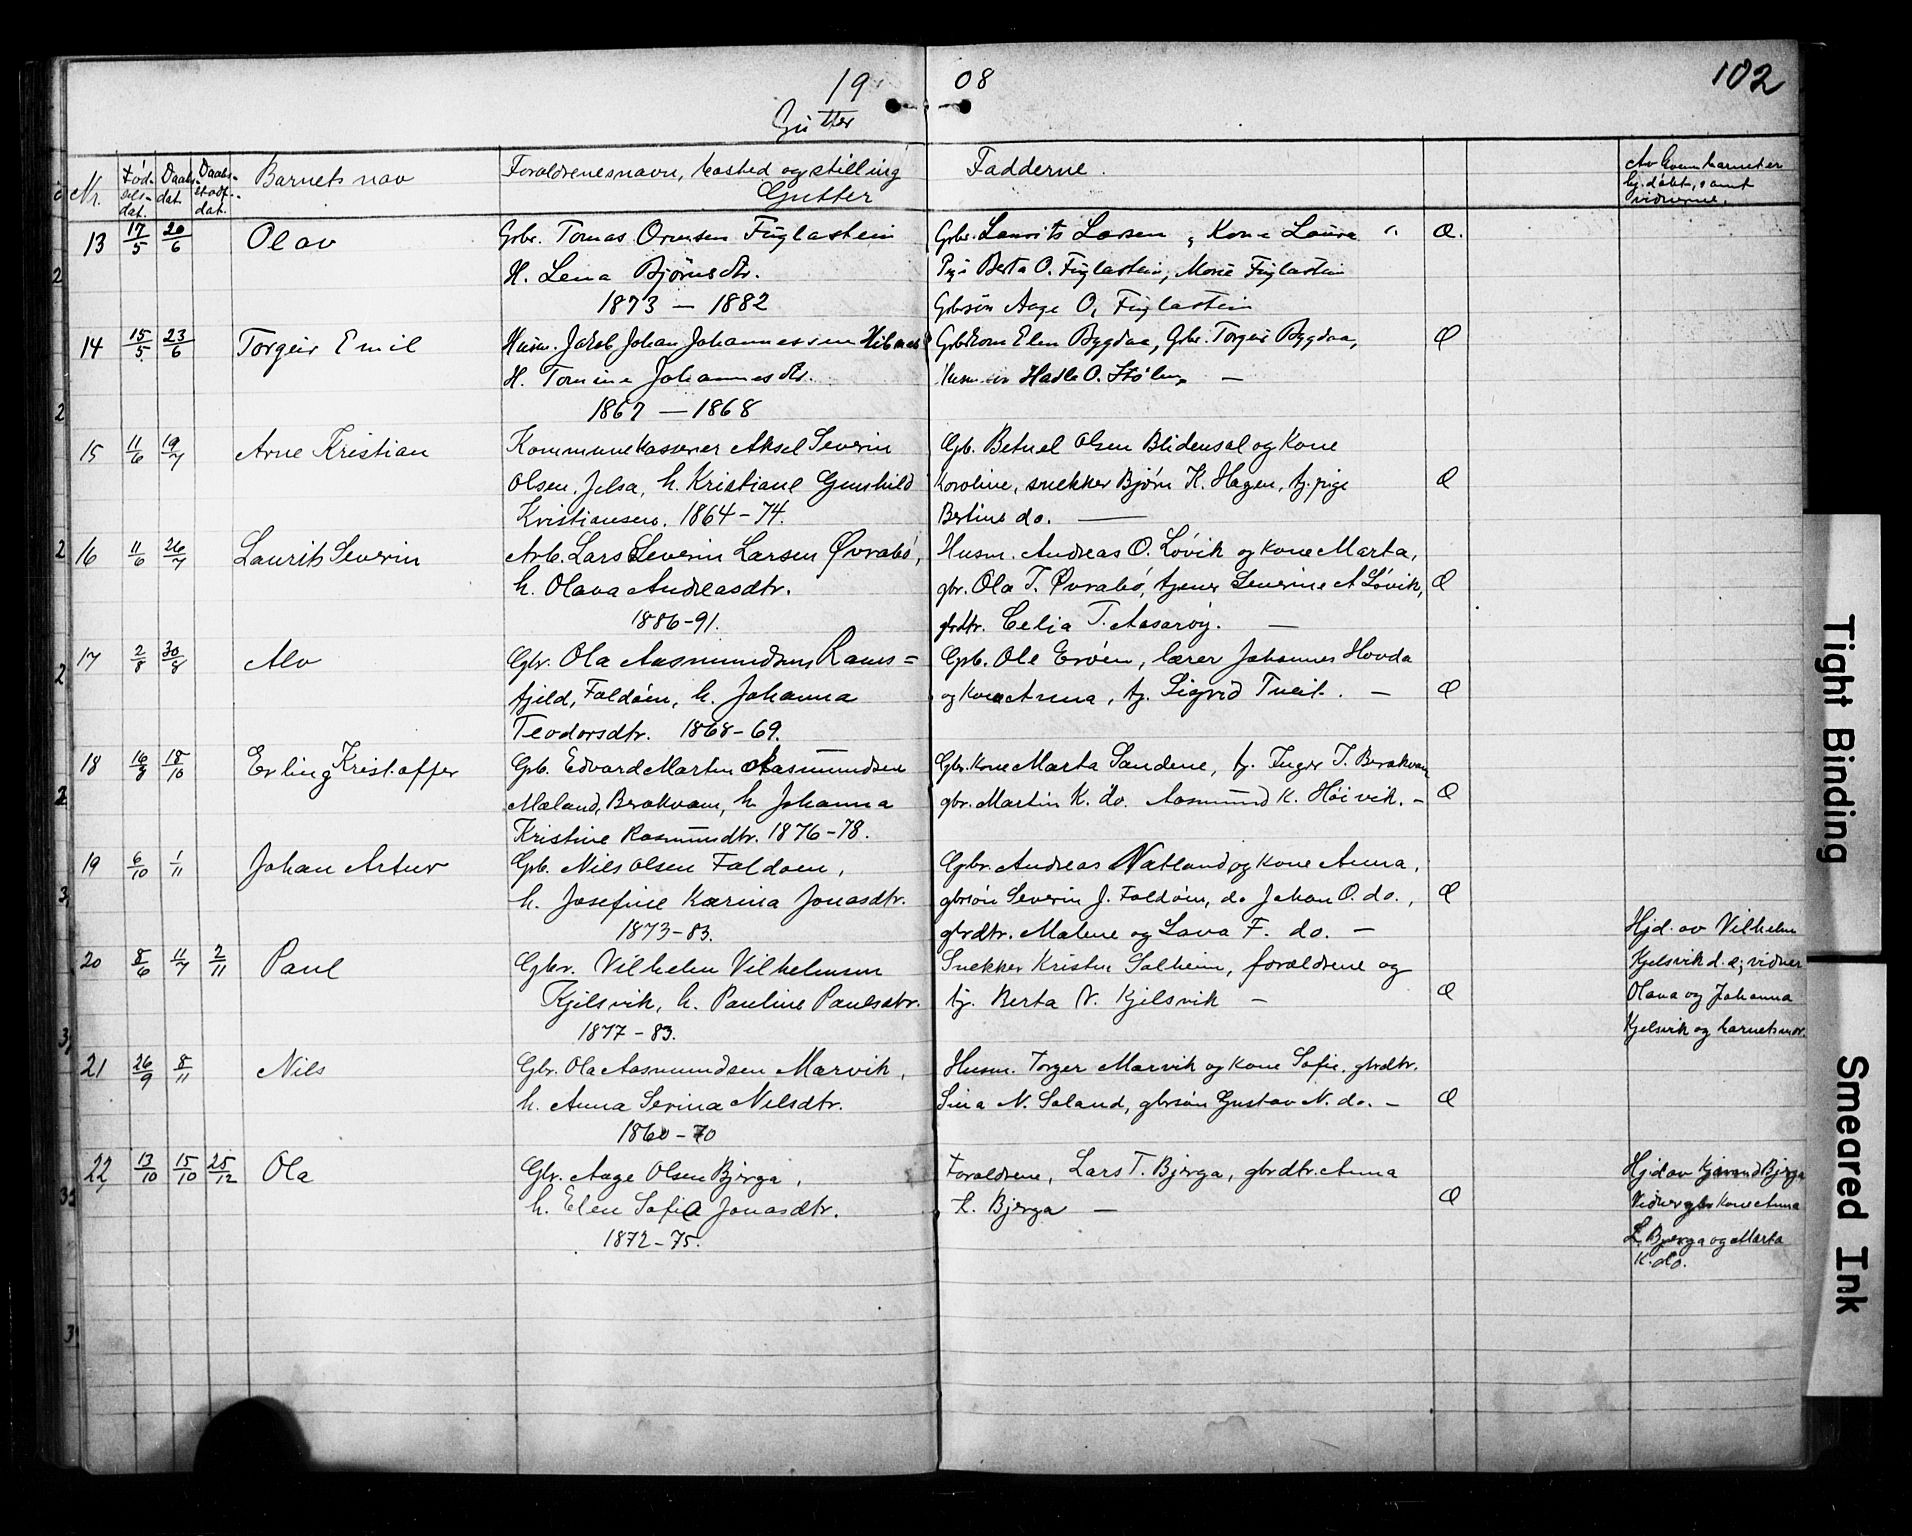 19 08
102
Gutter
Nr. Fød- sels- dat. Daabs- dat. Daabs- stadf.- dat. Barnets nav Forældrenes navn, bosted og stilling Fadderne. Av hvem barnet er
Gutter hj.døbt, samt
vidnerne.
13 17/5 20/6 Olav Gbr. Tomas Ormsen Fuglastein Gbr. Laurits Larsen, Kone Laura " Q.
H. Lena Bjørnsdtr. Pige Berta O. Fuglastein, Marie Fuglastein
1873 — 1882 Gbrsøn Aage O. Fuglastein
14 15/5 23/6 Torgeir Emil Husm. Jakob Johan Johannessen Hebnes Gbrkone Elen Bygdaa, Gbr. Torgeir Bygdaa, Q
H. Tomine Johannesdtr. Hadle O. Stølen —
1867 — 1868
15 11/6 19/7 Arne Kristian Kommunekasserer Aksel Severin Gb. Betuel Olsen Blidensol og Kone
Olsen, Jelsa, h. Kristiane Gunhild Karoline, snekker Bjørn K. Hagen, tj. pige Q
Kristiansen. 1864-74. Bertine do. —
16 11/6 26/7 Laurits Severin Arb. Lars Severin Larsen Øvrabø, Husm. Andreas O. Løvik og kone Marta,
h. Olava Andreasdtr. gbr. Ola T. Øvrabø, tjener Severine A Løvik, Q
1886-91. gbrdtr. Celia T. Aasarøy. —
17 2/8 30/8 Alv Gbr. Ola Aasmundsen Rams= Grb. Ole Erøen, lærer Johannes Hovda
fjeld, Foldøen, h. Johanna og kone Anna, tj. Sigrid Tveit. — Q
Teodorsdtr. 1868-69.
18 16/8 18/10 Erling Kristoffer Grb. Edvard Martin Aasmundsen Gbr.kone Marta Sandene, tj. Inger T. Berakvam
Mæland, Berakvam, h. Johanna gbr. Martin K. do. Aasmund K. Høivik. — Q
Kristine Rasmusdtr. 1876-78.
19 6/10 1/11 Johan Artur Grb. Nils Olsen Foldøen, Gbr. Andreas Natland og kone Anna,
h. Josefine Karina Jonasdtr. gbrsøn Severin J. Foldøen, do Johan O. do., Q
1873-83. gbrdtr. Malene og Lava F. do. —
20 8/6 11/7 2/11 Paul Gbr. Vilhelm Vilhelmsen Snekker Kristen Solheim, forældrene og Hjd. av Vilhelm
Kjølsvik, h. Pauline Paulsdtr. tj. Berta V. Kjelsvik — Q Kjelsvik d. e; vidner
1877-83. Olava og Johanna
Kjelsvik og barnets mor.
21 26/9 8/11 Nils Gbr. Ola Aasmundsen Marvik, Husm. Torger Marvik og kone Sofie, gbrdtr.
h. Anna Serina Nilsdtr. Sina N. Saland, gbrsøn Gustav N. do. — Q
1860-70
22 13/10 15/10 25/12 Ola Gbr. Aage Olsen Bjerga, Forældrene, Lars T. Bjerga, gbrdtr. Anna Hjd av Bjerga
h. Elen Sofie Jonasdtr. L. Bjerga — Q Vidner gbr kone Anna
1872-75. L. Bjerga og Marta
K. do.
Tight Binding
Smeared Ink